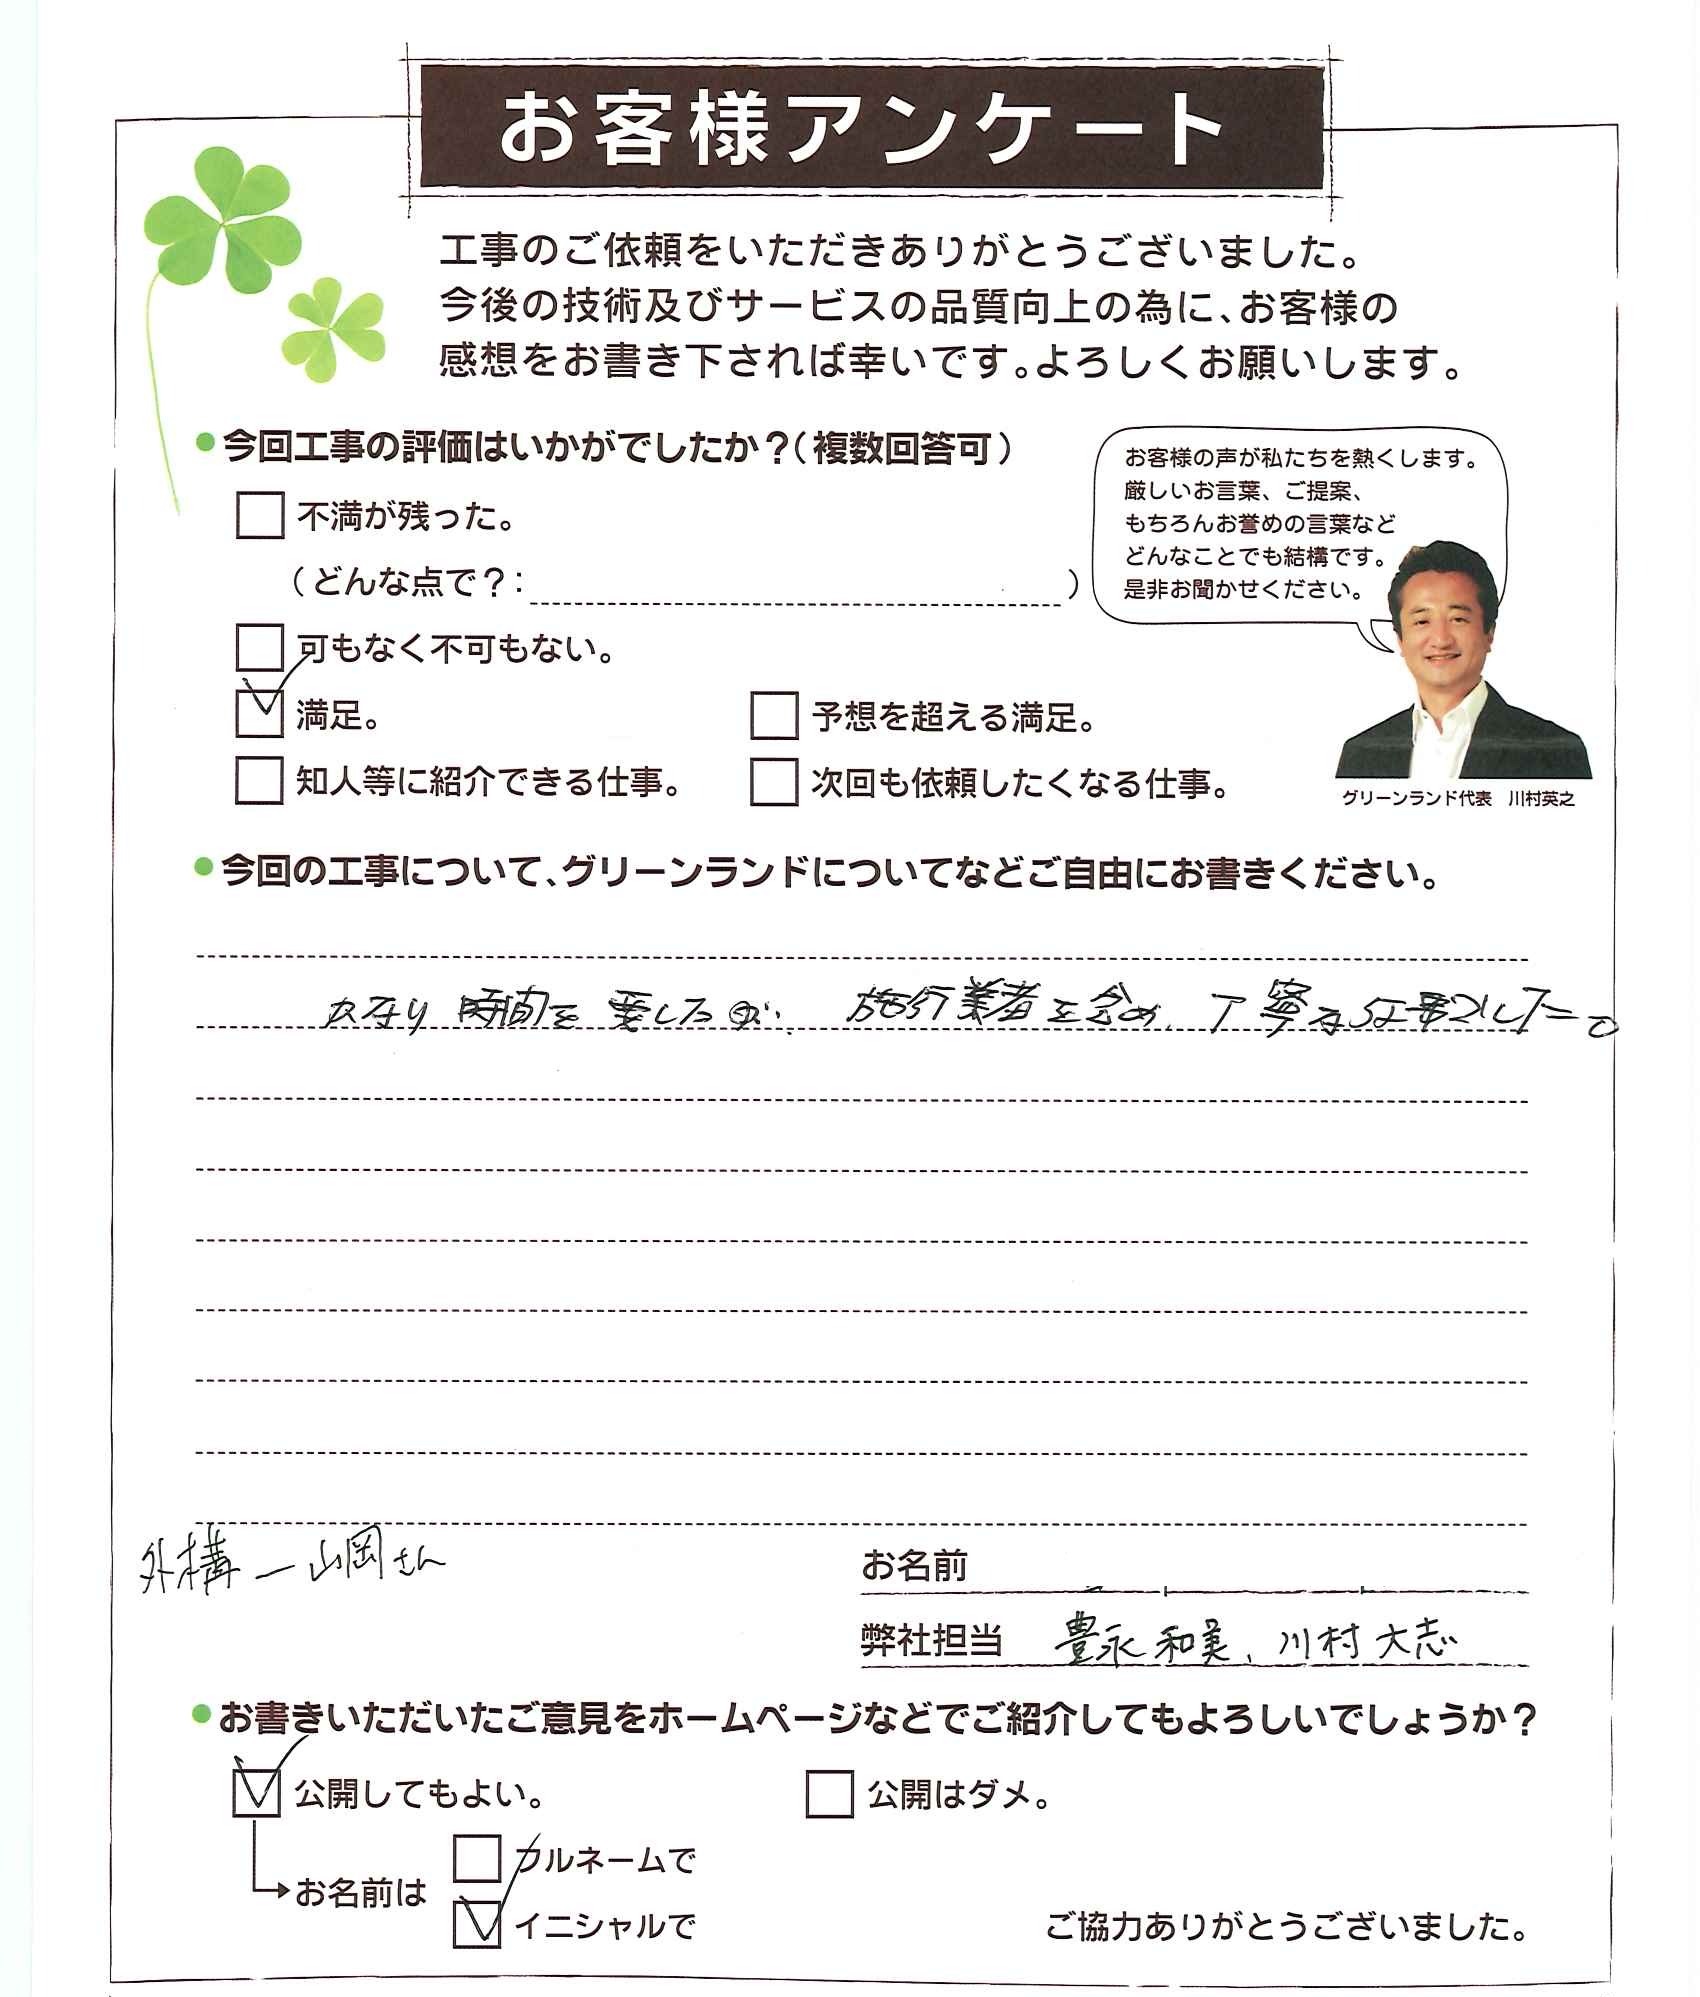 お客様アンケート
工事のご依頼をいただきありがとうございました。
今後の技術及びサービスの品質向上の為に、お客様の
感想をお書き下されば幸いです。よろしくお願いします。
●今回工事の評価はいかがでしたか？（複数回答可）
お客様の声が私たちを熱くします。
厳しいお言葉、ご提案、
もちろんお誉めの言葉など
どんなことでも結構です。
是非お聞かせください。
不満が残った。
（どんな点で？：　）
可もなく不可もない。
満足。
予想を超える満足。
知人等に紹介できる仕事。
次回も依頼したくなる仕事。
グリーンランド代表　川村英之
●今回の工事について、グリーンランドについてなどご自由にお書きください。
かなり時間を要したが、施行業者を含め、丁寧な仕事でした。
外構ー山岡さん
お名前
弊社担当　豊永和美、川村大志
●お書きいただいたご意見をホームページなどでご紹介してもよろしいでしょうか？
公開してもよい。
公開はダメ。
お名前は
フルネームで
イニシャルで
ご協力ありがとうございました。